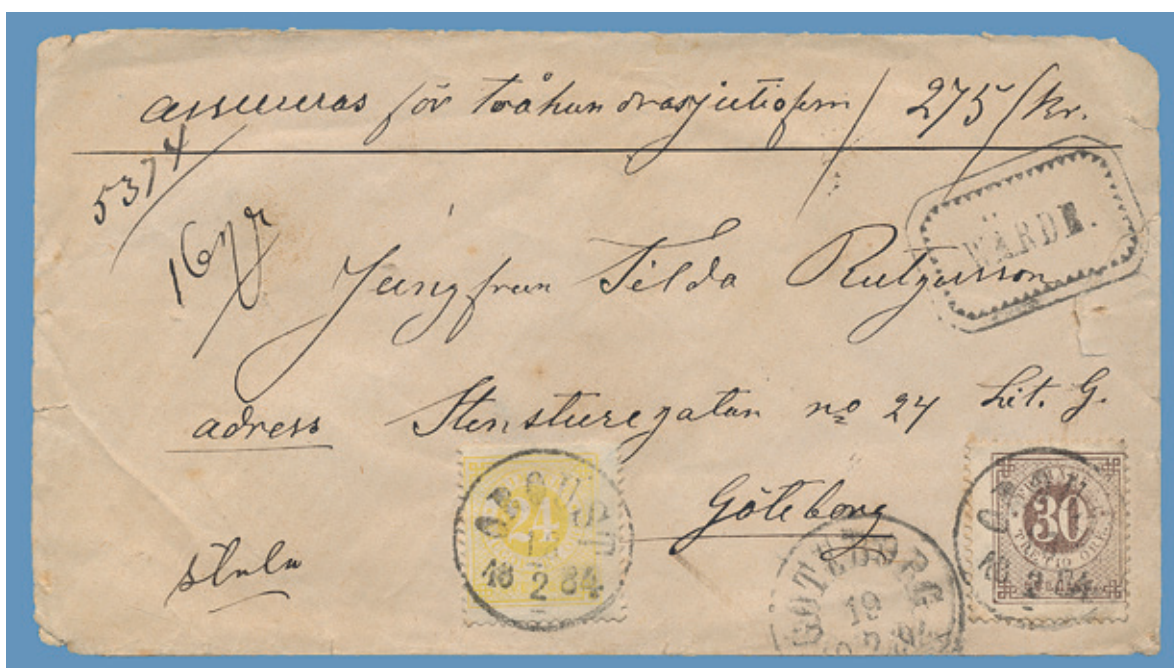 assureras för tvåhundrasjutiofem / 275 / kr.
5374
WÄRDE.
Jungfrun Tilda Rutgersson
adress Stensturegatan no 24 Lit. G.
Göteborg
24
18 2 84
30
TRETTIO ÖRE
GÖTEBORG
19